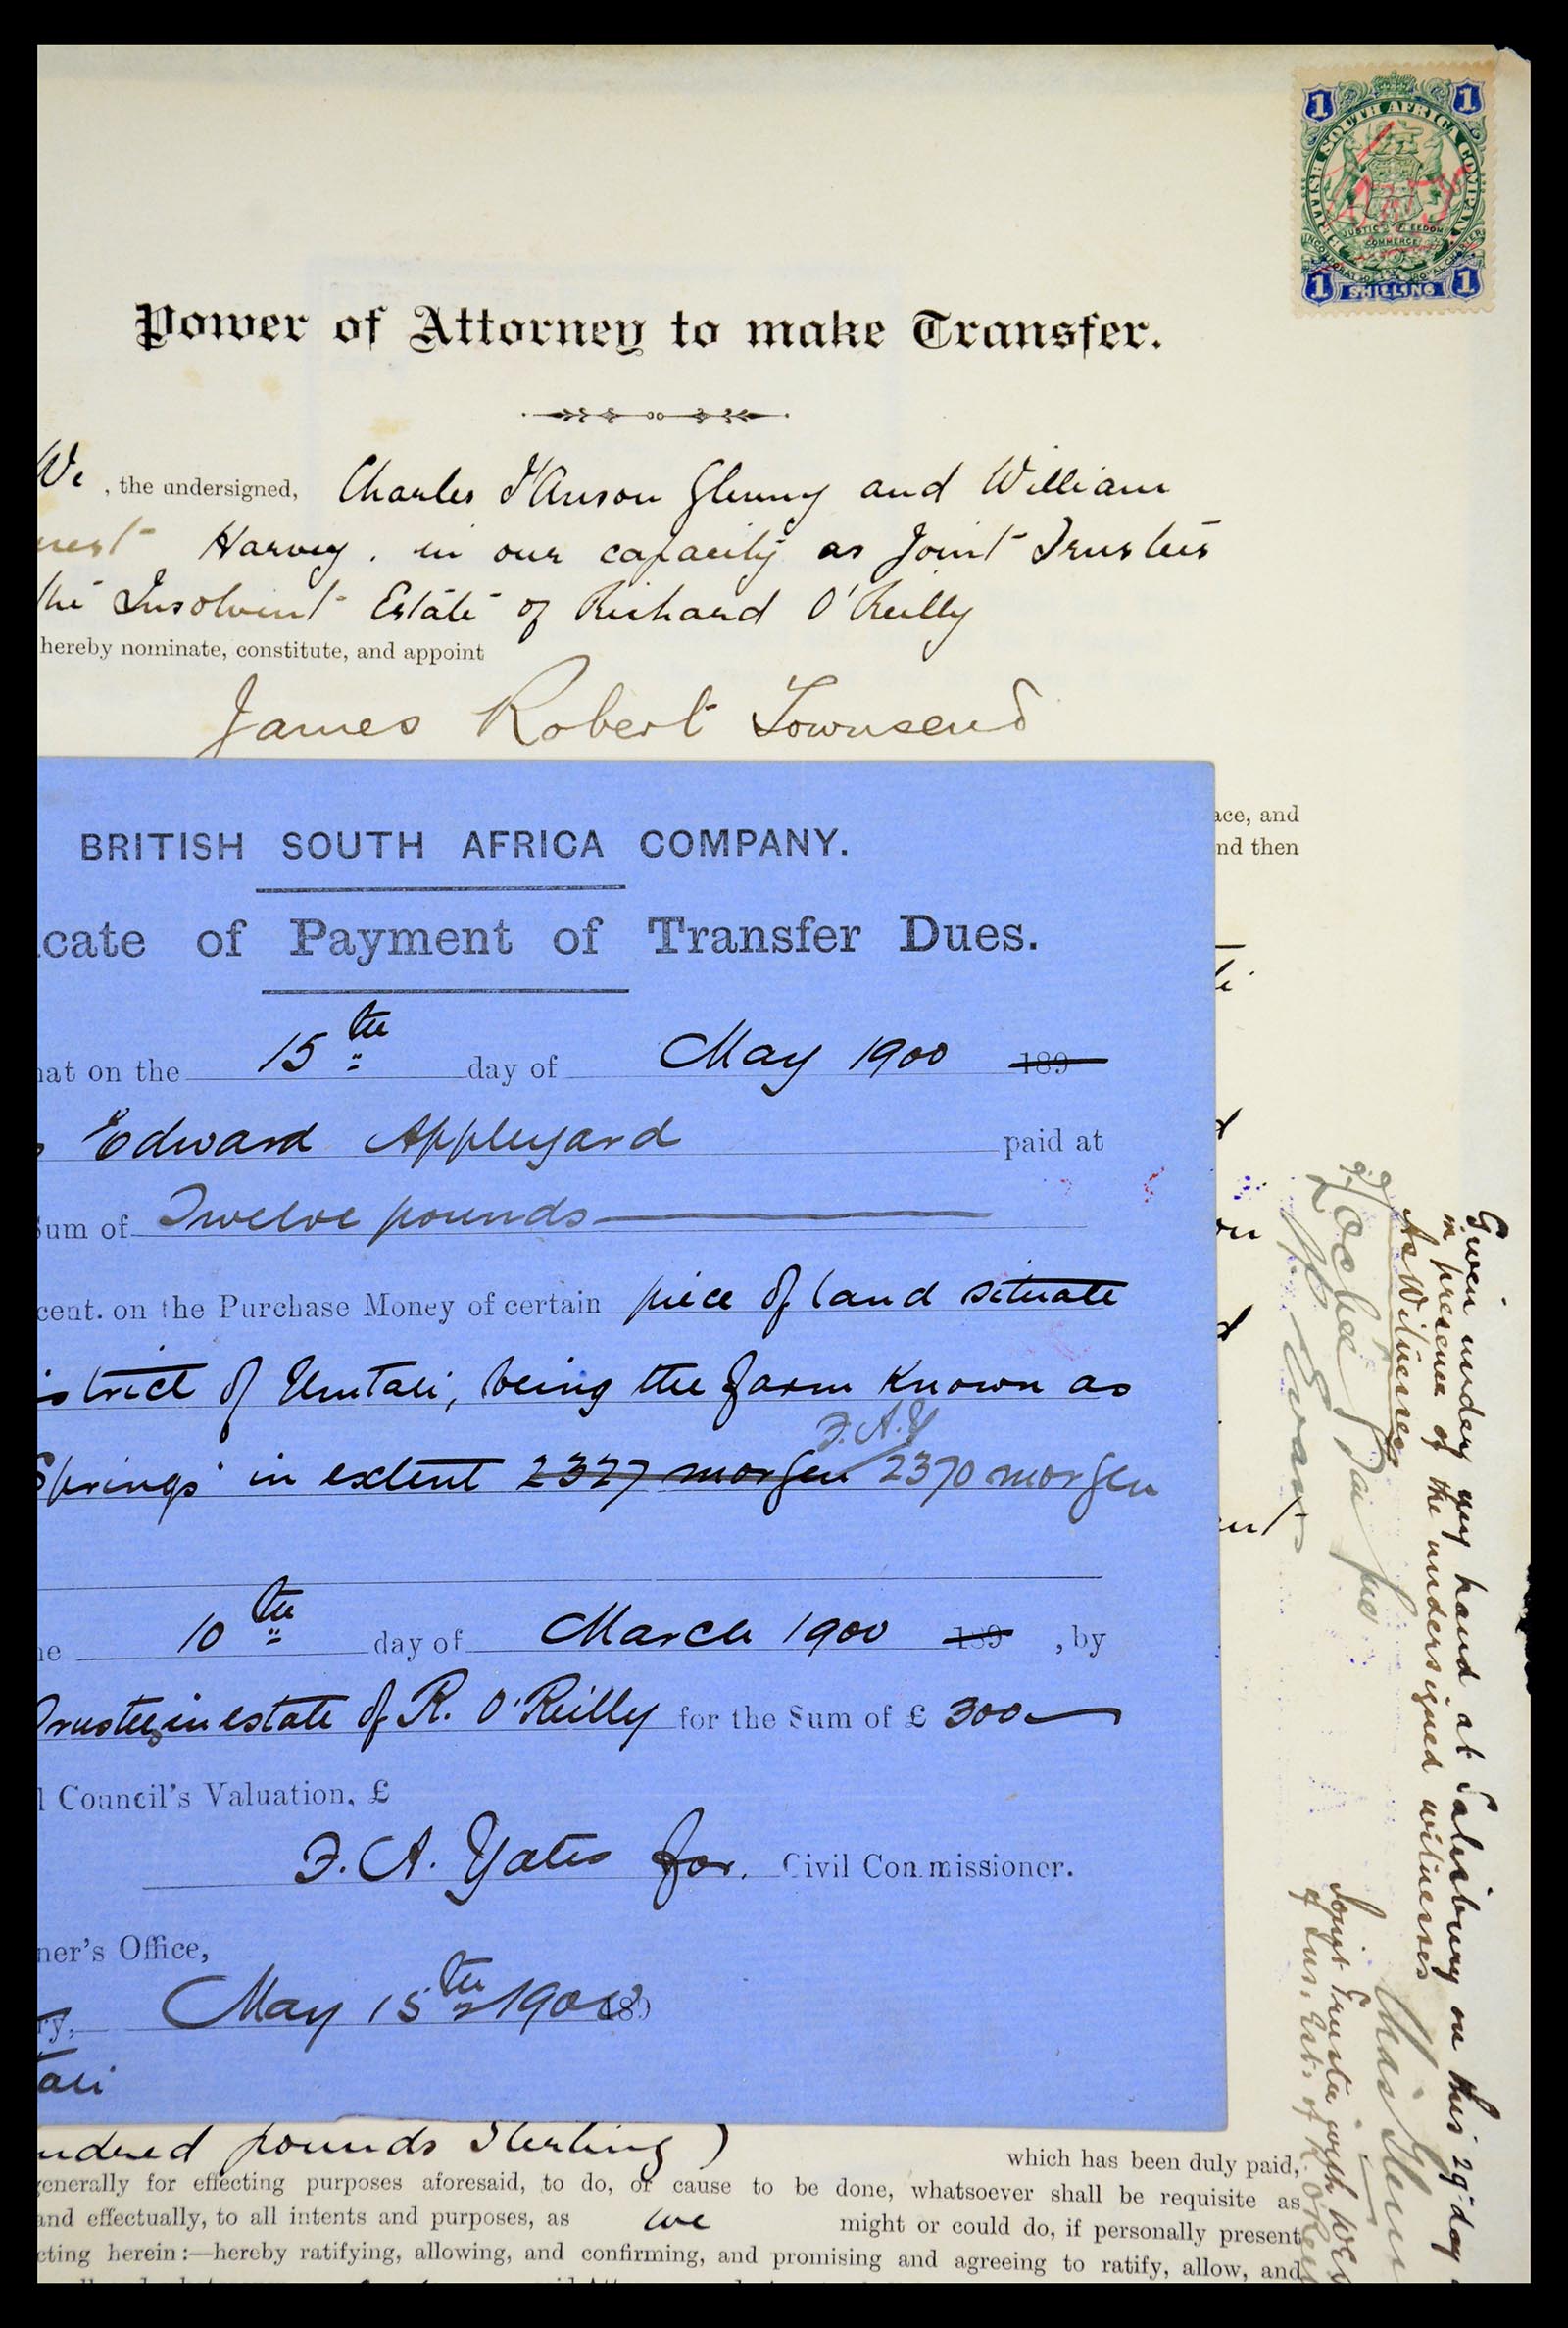 1 1
BRITISH SOUTH AFRICA COMPANY
JUSTICE FREEDOM
COMMERCE
INCORPORATED ROYAL CHARTER
1 SHILLING 1
Power of Attorney to make Transfer.
We, the undersigned, Charles I'Anson Glenny and William
nest Harvey. in our capacity as Joint Trustees
the Insolvent Estate of Richard O'Reilly
hereby nominate, constitute, and appoint
James Robert Townsend
ace, and
nd then
BRITISH SOUTH AFRICA COMPANY.
icate of Payment of Transfer Dues.
hat on the 15th day of May 1900 189
Edward Appleyard paid at
Sum of Twelve pounds
cent. on the Purchase Money of certain piece of land situate
istrict of Umtali, being the farm known as
F.A.Y
Springs' in extent 2327 morgen 2370 morgen
he 10th day of March 1900 189 , by
Trustees in estate of R. O'Reilly for the Sum of £ 300
l Council's Valuation, £
F. A. Yates for. Civil Commissioner.
ner's Office,
ry, May 15th 1900 189
tali
undred pounds Sterling)
which has been duly paid,
generally for effecting purposes aforesaid, to do, or cause to be done, whatsoever shall be requisite as
and effectually, to all intents and purposes, as we might or could do, if personally present
cting herein:—hereby ratifying, allowing, and confirming, and promising and agreeing to ratify, allow, and
Given under my hand at Salisbury on this 29th day
in presence of the undersigned witnesses
As Witnesses
Chas Glenn
Joint Trustee with
of Ins. Est. of R. O'Rei